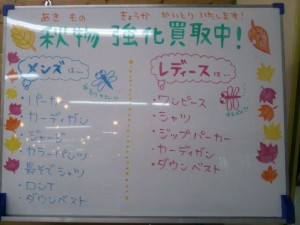 あき もの きょうか かいとり いたします!
秋物 強化買取中!
メンズは…
・パーカー
・カーディガン
・ジャージ
・カラーパンツ
・長そでシャツ
・ロンT
・ダウンベスト
レディースは…
・ワンピース
・シャツ
・ジップパーカー
・カーディガン
・ダウンベスト